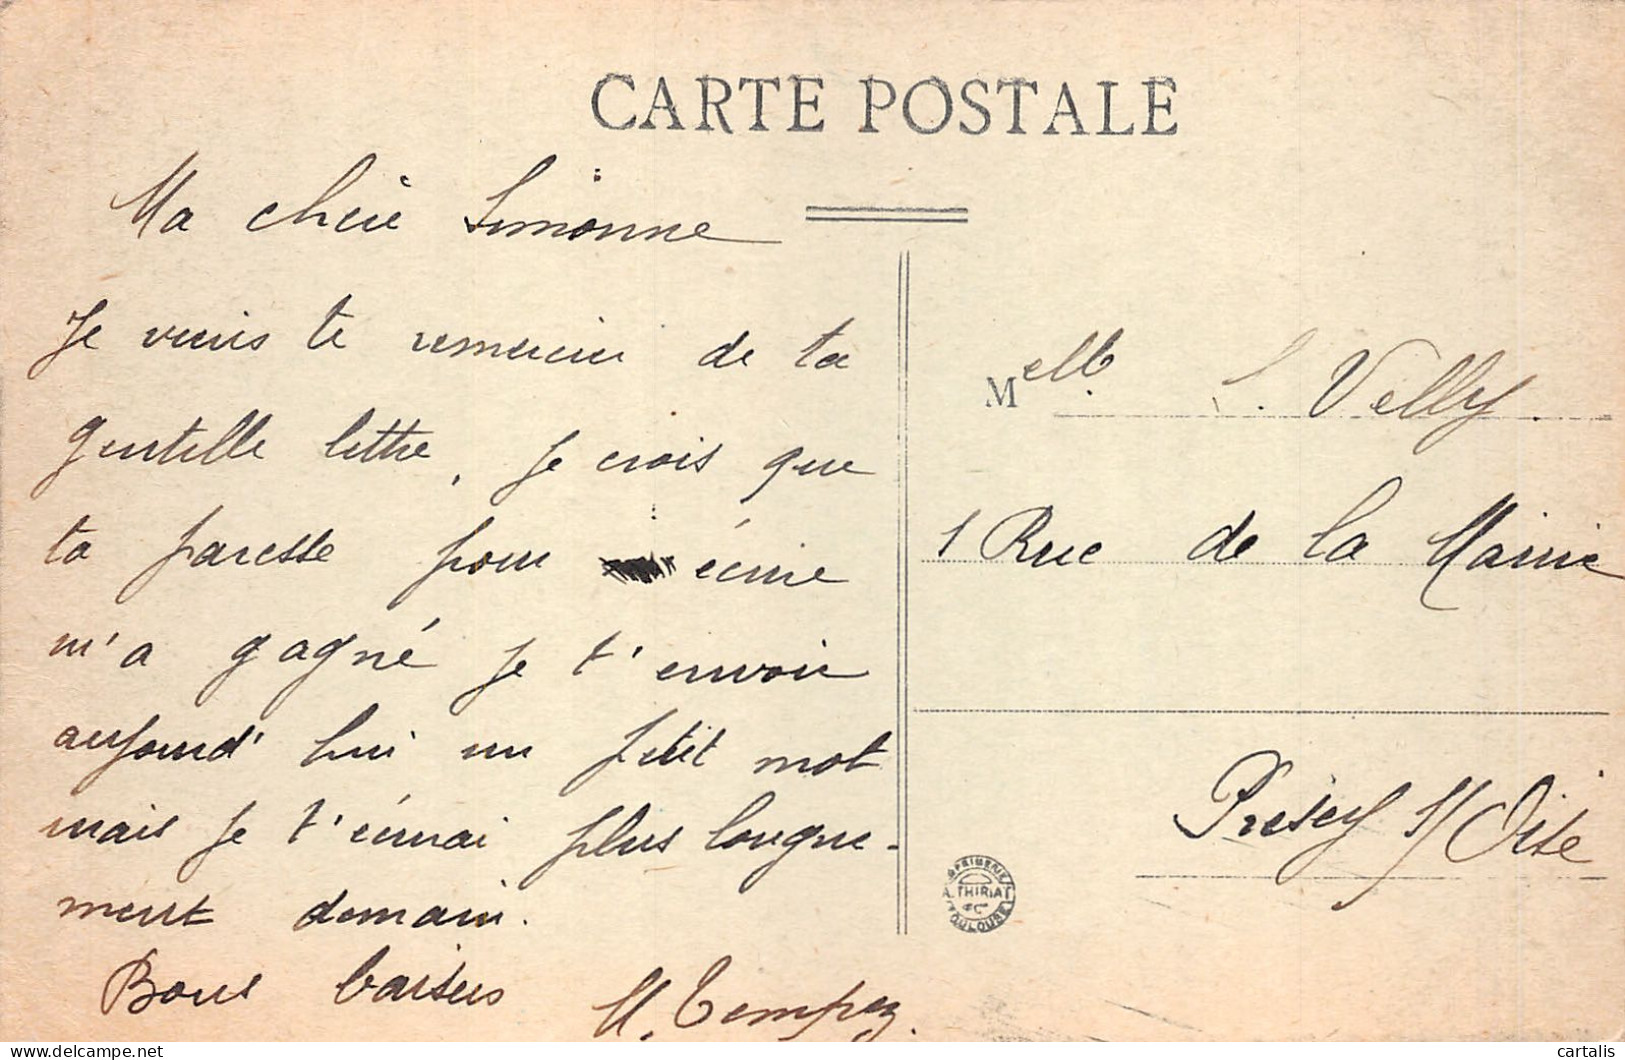 CARTE POSTALE
Ma chère Simonne
Je viens te remercier de ta
gentille lettre, je crois que
ta paresse pour écrire
m'a gagné je t'envoie
aujourd'hui un petit mot
mais je t'écrirai plus longue-
ment demain.
Bons baisers M. Tempez.
Melle. S. Velly.
1 Rue de la Mairie
Précy s/ Oise
IMPRIMERIE
A. THIRIAT
& Cie
TOULOUSE
cartalis